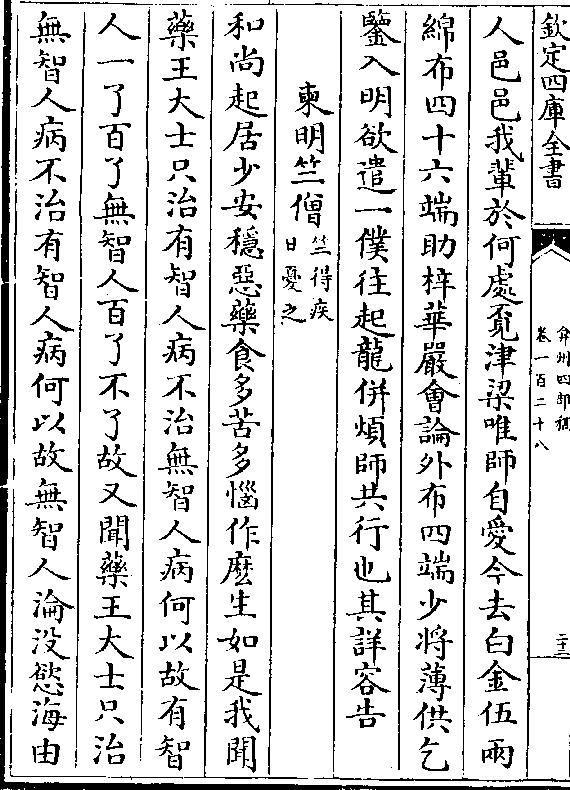 欽定四庫全書
弇州四部稿
卷一百二十八
二十三
人邑邑我輩於何處覓津梁唯師自愛今去白金伍兩
綿布四十六端助梓華嚴會論外布四端少將薄供乞
鑒入明欲遣一僕往起龍併煩師共行也其詳容告
柬明竺僧
竺得疾
日憂之
和尚起居少安穩惡藥食多苦多惱作麽生如是我聞
藥王大士只治有智人病不治無智人病何以故有智
人一了百了無智人百了不了故又聞藥王大士只治
無智人病不治有智人病何以故無智人淪没慾海由